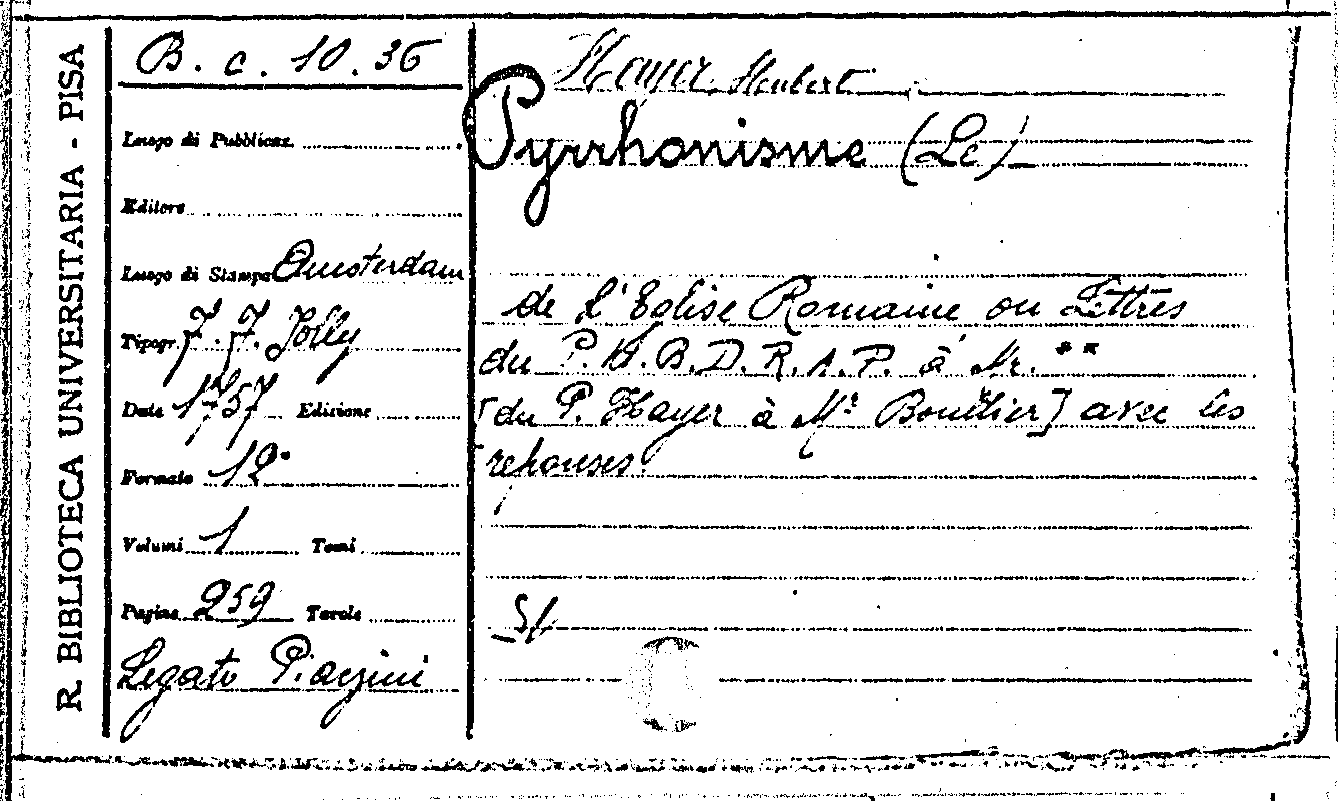 R. BIBLIOTECA UNIVERSITARIA - PISA
B. c. 10. 36
Luogo di Pubblicaz.
Editore
Luogo di Stampa Amsterdam
Tipogr. J. J. Jolly
Data 1757 Edizione
Formato 12°
Volumi 1 Tomi
Pagine 259 Tavole
Legato Piazzini
Hayer Hubert
Pyrrhonisme (Le)
de l'Eglise Romaine ou Lettres
du P. H. B. D. R. A. P. à Mr. **
[du P. Hayer à Mr Boullier] avec les
reponses.